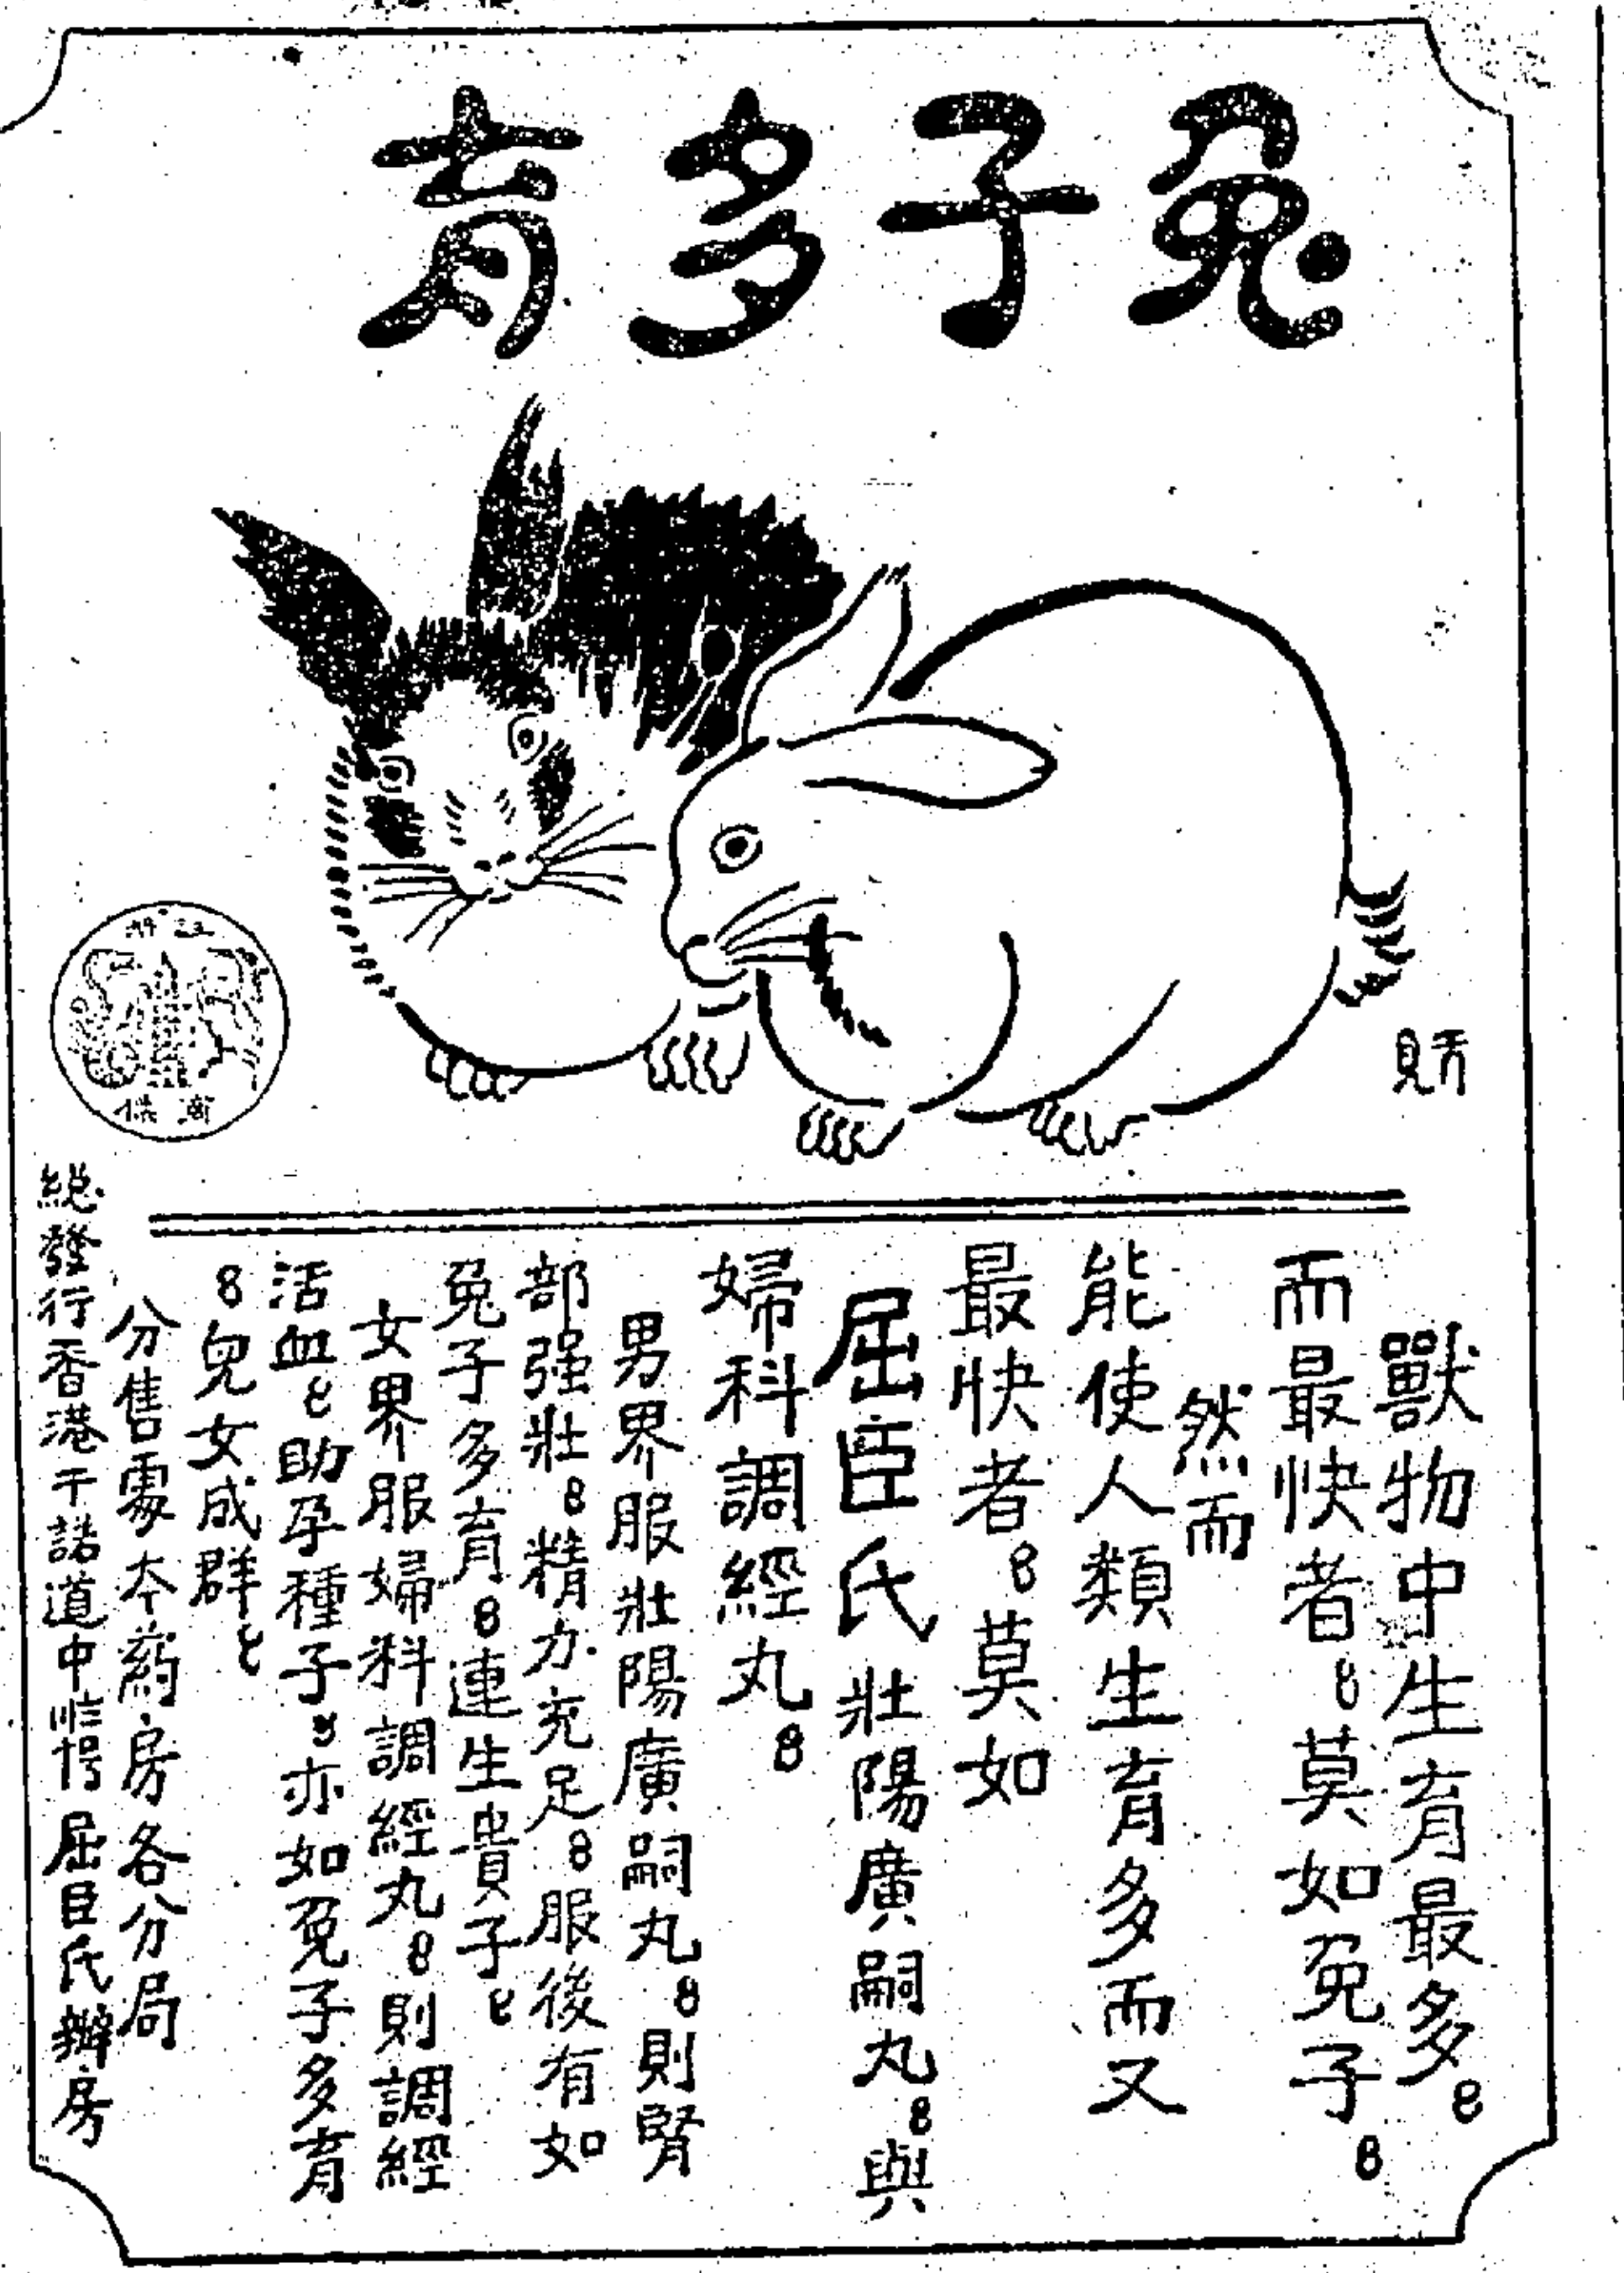 兔子多育
獸物中生育最多。
而最快者。莫如兔子。
然而
能使人類生育多而又
最快者。莫如
屈臣氏壯陽廣嗣丸。與
婦科調經丸。
男界服壯陽廣嗣丸。則腎
部强壯。精力充足。服後有如
兔子多育。連生貴子。
女界服婦科調經丸。則調經
活血。助孕種子。亦如兔子多育
。兒女成群。
分售處本葯房各分局
總發行香港干諾道中 屈臣氏葯房